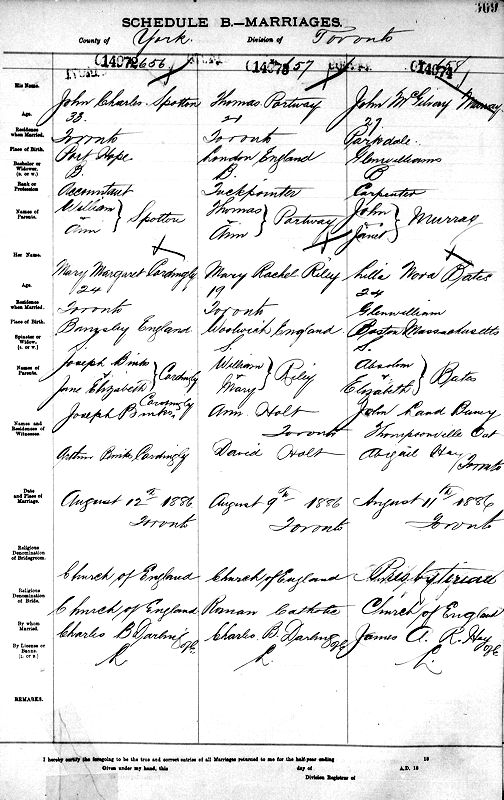 309
SCHEDULE B.—MARRIAGES.
County of York Division of Toronto
014072 656 014073 657 014074 658
His Name. John Charles Spotton Thomas Partway John McGilvray Murray
Age. 23. 21 27
Residence when Married. Toronto Toronto Parkdale
Place of Birth. Port Hope London England Glenwilliams
Bachelor or Widower. (B. or W.) B. B. B
Rank or Profession Accountant Tuckpointer Carpenter
Names of Parents. William & Ann } Spotton Thomas & Ann } Partway John & Janet } Murray
Her Name. Mary Margaret Cordingly Mary Rachel Riley Nora Bates
Age. 24 19 24
Residence when Married. Toronto Toronto Glenwilliam
Place of Birth. Bangsley England Woolwich England Boston Massachusetts
Spinster or Widow. (S. or W.) S. S.
Names of Parents. Joseph Binks & Jane Elizabeth } Cordingly William & Mary } Riley & Elizabeth } Bates
Names and Residences of Witnesses. Joseph Binks Cordingly Ann Holt John
Toronto Thompsonville Ont
Arthur Binks Cordingly David Holt Abigail Hay Toronto
Date and Place of Marriage. August 12th 1886 August 9th 1886 August 11th 1886
Toronto Toronto Toronto
Religious Denomination of Bridegroom. Church of England Church of England Presbyterian
Religious Denomination of Bride. Church of England Roman Catholic Church of England
By whom Married. Charles B Darling Charles B. Darling James A. R. Hay
By License or Banns. (L or B.) L L. L.
REMARKS.
I hereby certify the foregoing to be the true and correct entries of all Marriages returned to me for the half-year ending 18
Given under my hand, this day of A.D. 18
Division Registrar of